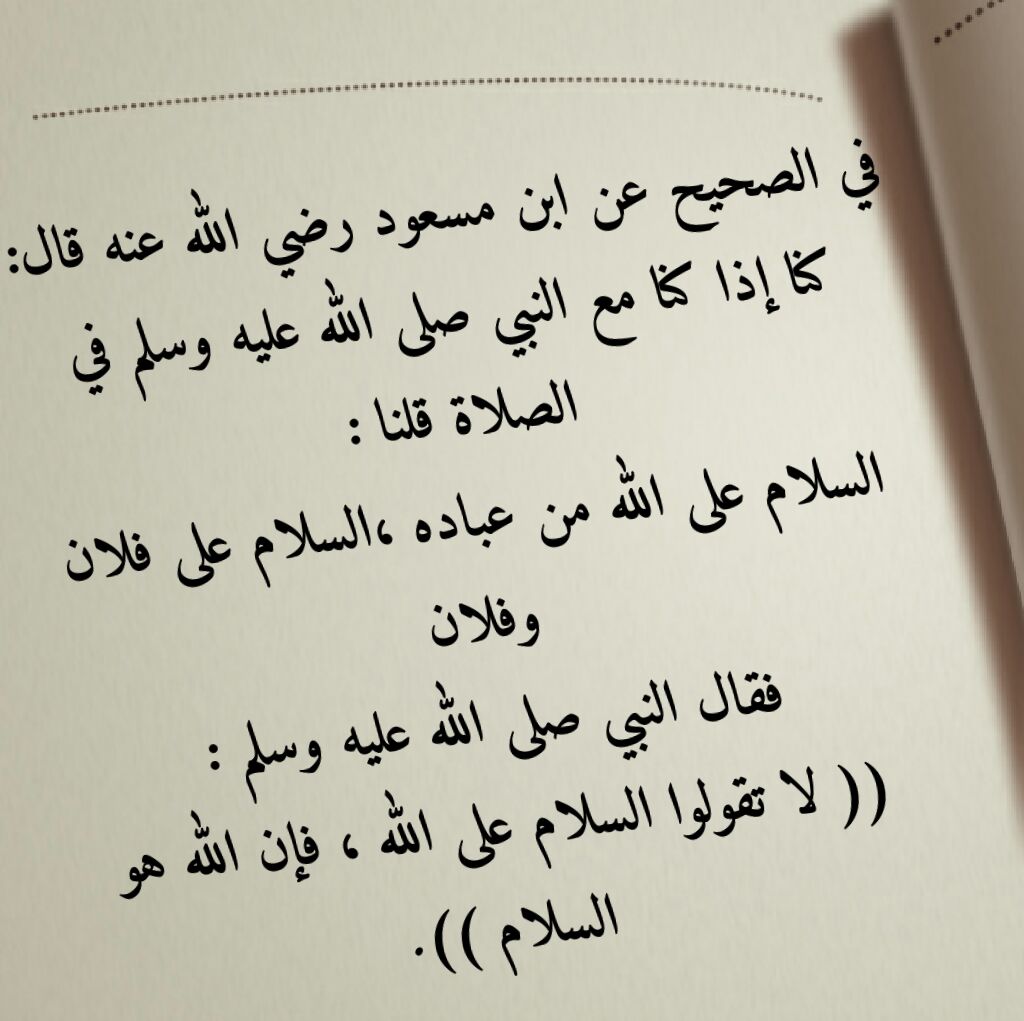 في الصحيح عن ابن مسعود رضي الله عنه قال:
كنا إذا كنا مع النبي صلى الله عليه وسلم في
الصلاة قلنا :
السلام على الله من عباده ،السلام على فلان
وفلان
فقال النبي صلى الله عليه وسلم :
(( لا تقولوا السلام على الله ، فإن الله هو
السلام )).